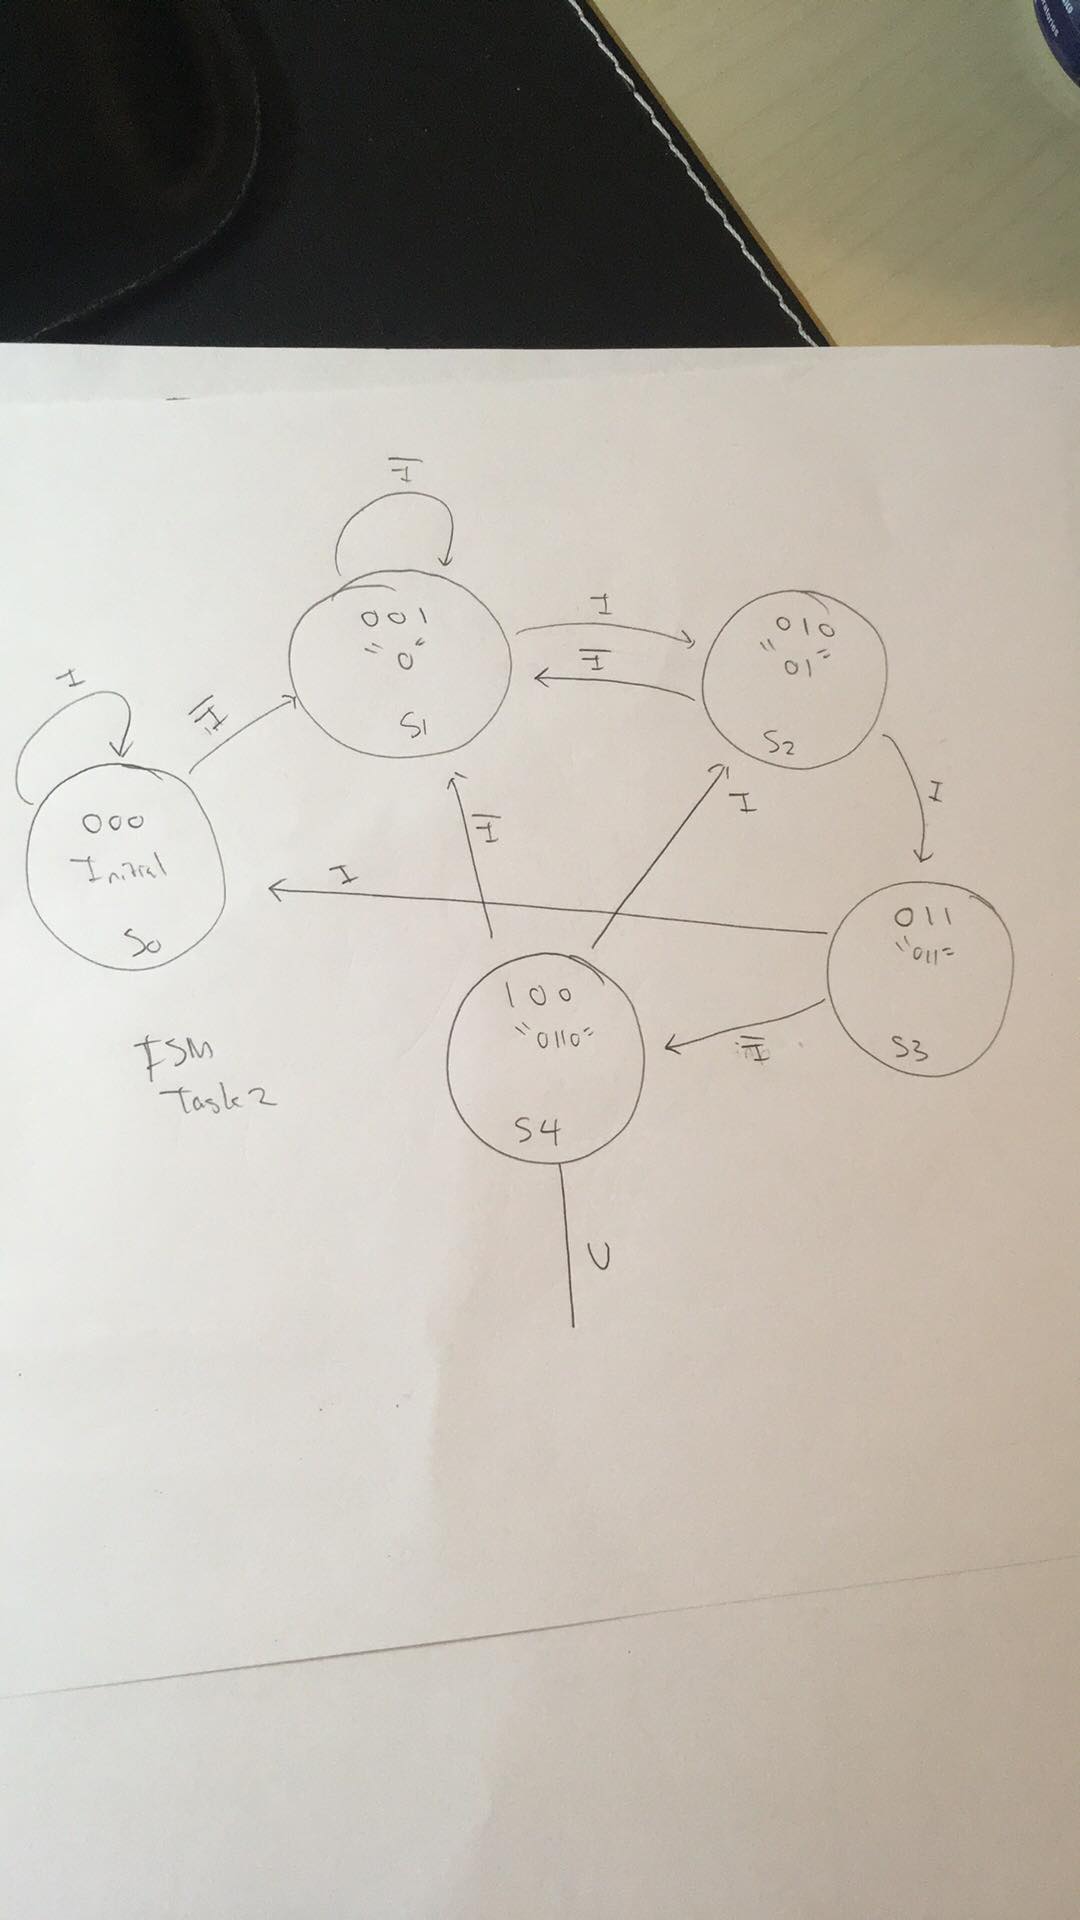 I̅
001
"0"
S1
I
I̅
010
"01"
S2
I
I̅
000
Initial
S0
I̅
I
I
I
011
"011"
S3
100
"0110"
S4
I̅
FSM
Task 2
U